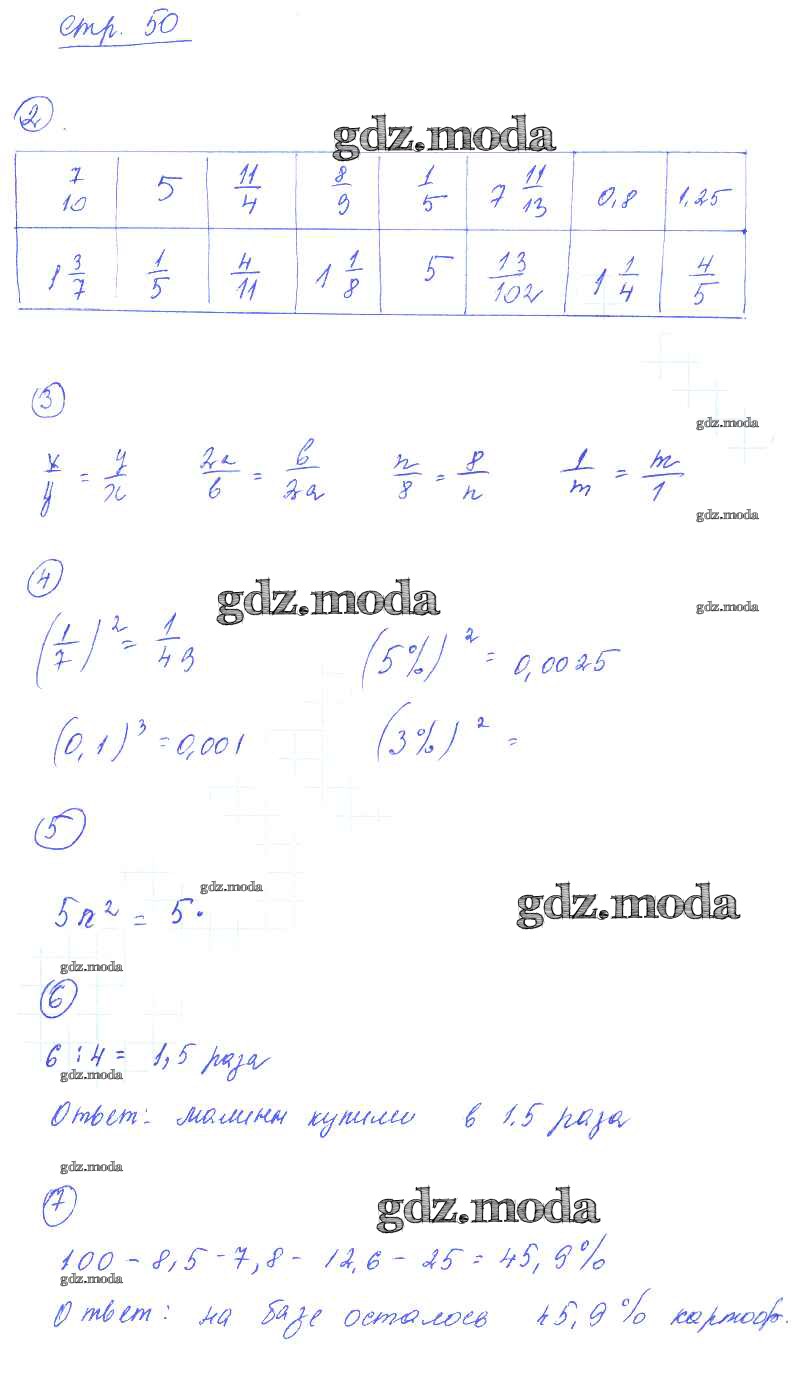 стр. 50
2
gdz.moda
7/10 5 11/4 8/9 1/5 7 11/13 0,8 1,25
1 3/7 1/5 4/11 1 1/8 5 13/102 1 1/4 4/5
3
gdz.moda
x/y = y/x 2a/b = b/2a n/8 = 8/n 1/m = m/1
gdz.moda
4
gdz.moda
gdz.moda
(1/7)² = 1/49 (5%)² = 0,0025
(0,1)³ = 0,001 (3%)² =
5
gdz.moda
gdz.moda
5n² = 5·
gdz.moda
6
6 : 4 = 1,5 раза
gdz.moda
Ответ: малины купили в 1.5 раза
gdz.moda
7
gdz.moda
100 - 8,5 - 7,8 - 12,6 - 25 = 45,9%
gdz.moda
Ответ: на базе осталось 45,9% картоф.